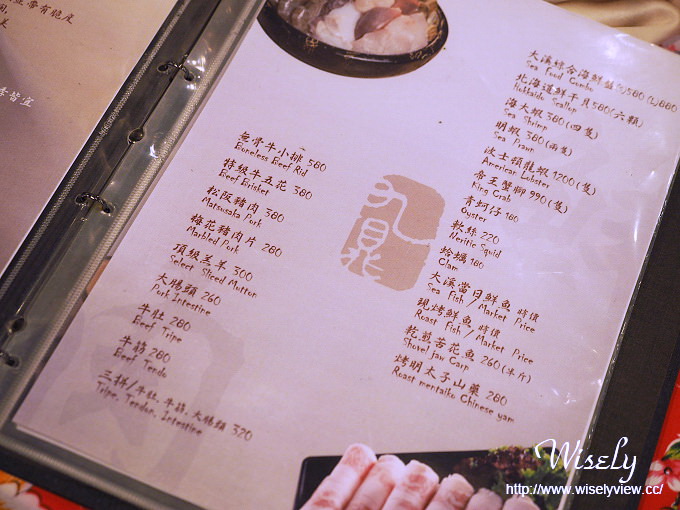 無骨牛小排 580
Boneless Beef Rid
特級牛五花 380
Beef Brisket
松阪豬肉 380
Matsusaka Pork
梅花豬肉片 280
Marbled Pork
頂級羔羊 300
Select Sliced Mutton
大腸頭 260
Pork Intestine
牛肚 280
Beef Tripe
牛筋 280
Beef Tendo
三拼/牛肚、牛筋、大腸頭 320
Tripe, Tendon, Intestine
大溪綜合海鮮盤 (S)580 (L)880
Sea Food Combo
北海道鮮干貝580(六顆)
Hokkaido Scallop
海大蝦 380(四隻)
Sea Shrimp
明蝦 380(兩隻)
Sea Prawn
波士頓龍蝦 1200(隻)
American Lobster
帝王蟹腳 990(隻)
King Crab
青蚵仔 180
Oyster
軟絲 220
Neritic Squid
蛤蠣 180
Clam
大溪當日鮮魚 時價
Sea Fish / Market Price
現烤鮮魚 時價
Roast Fish / Market Price
乾煎苦花魚 260(半斤)
Shovel jaw Carp
烤明太子山藥 280
Roast mentaiko Chinese yam
Wisely
http://www.wiselyview.cc/